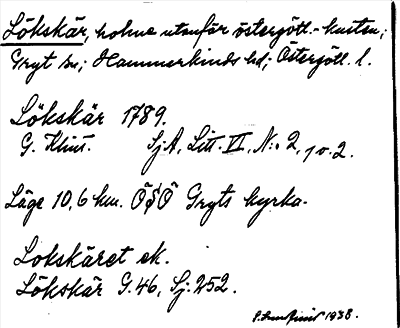 Lökskär, holme utanför östergötl.-kusten;
Gryt sn; Hammarkinds hd; Östergötl. l.
Lökskär 1789.
G. Klint. SjA, Litt. II, N:o 2, 1 o. 2.
Läge 10,6 km. ÖSÖ Gryts kyrka.
Lökskäret ek.
Lökskär G. 46, Sj: 252.
1938.